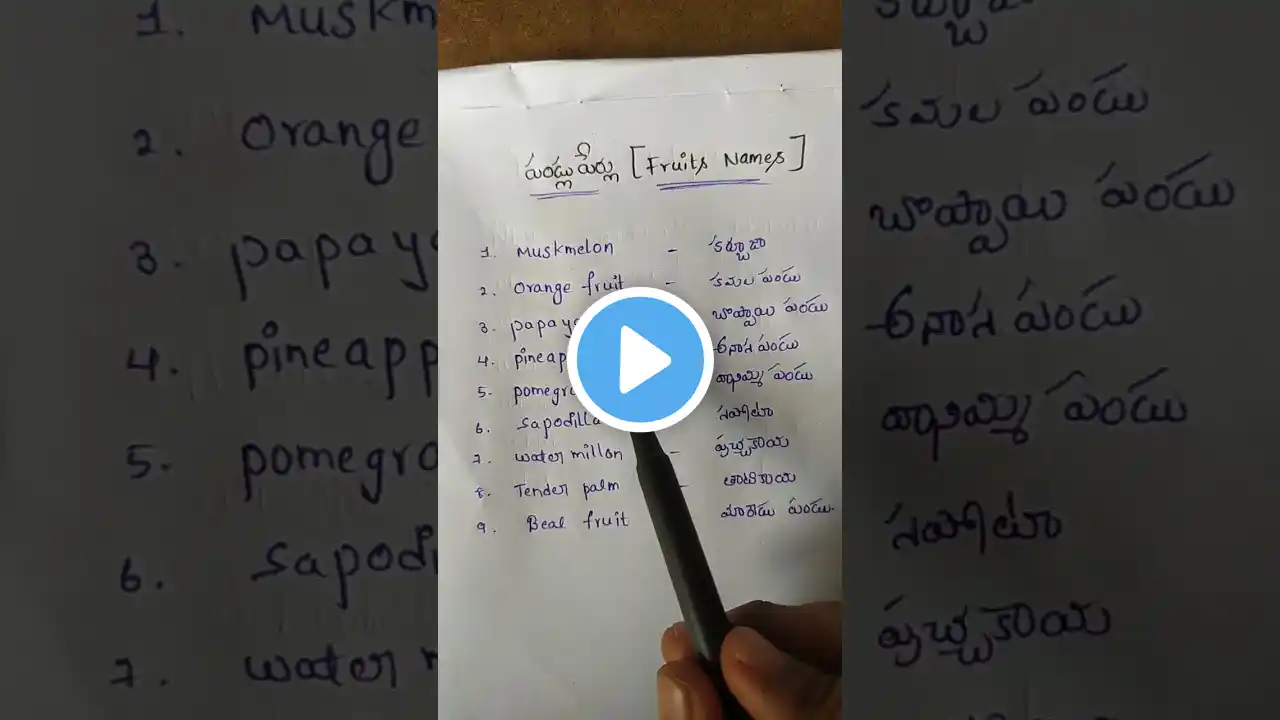 పండ్లు పేర్లు [Fruits Names]
1. Muskmelon - కర్బూజా
2. Orange fruit - కమల పండు
3. papaya బొప్పాయి పండు
4. pineapp అనాస పండు
5. pomegra దానిమ్మ పండు
6. Sapodilla సపోటా
7. water millon - పుచ్చకాయ
8. Tender palm - తాటికాయ
9. Beal fruit మారేడు పండు.